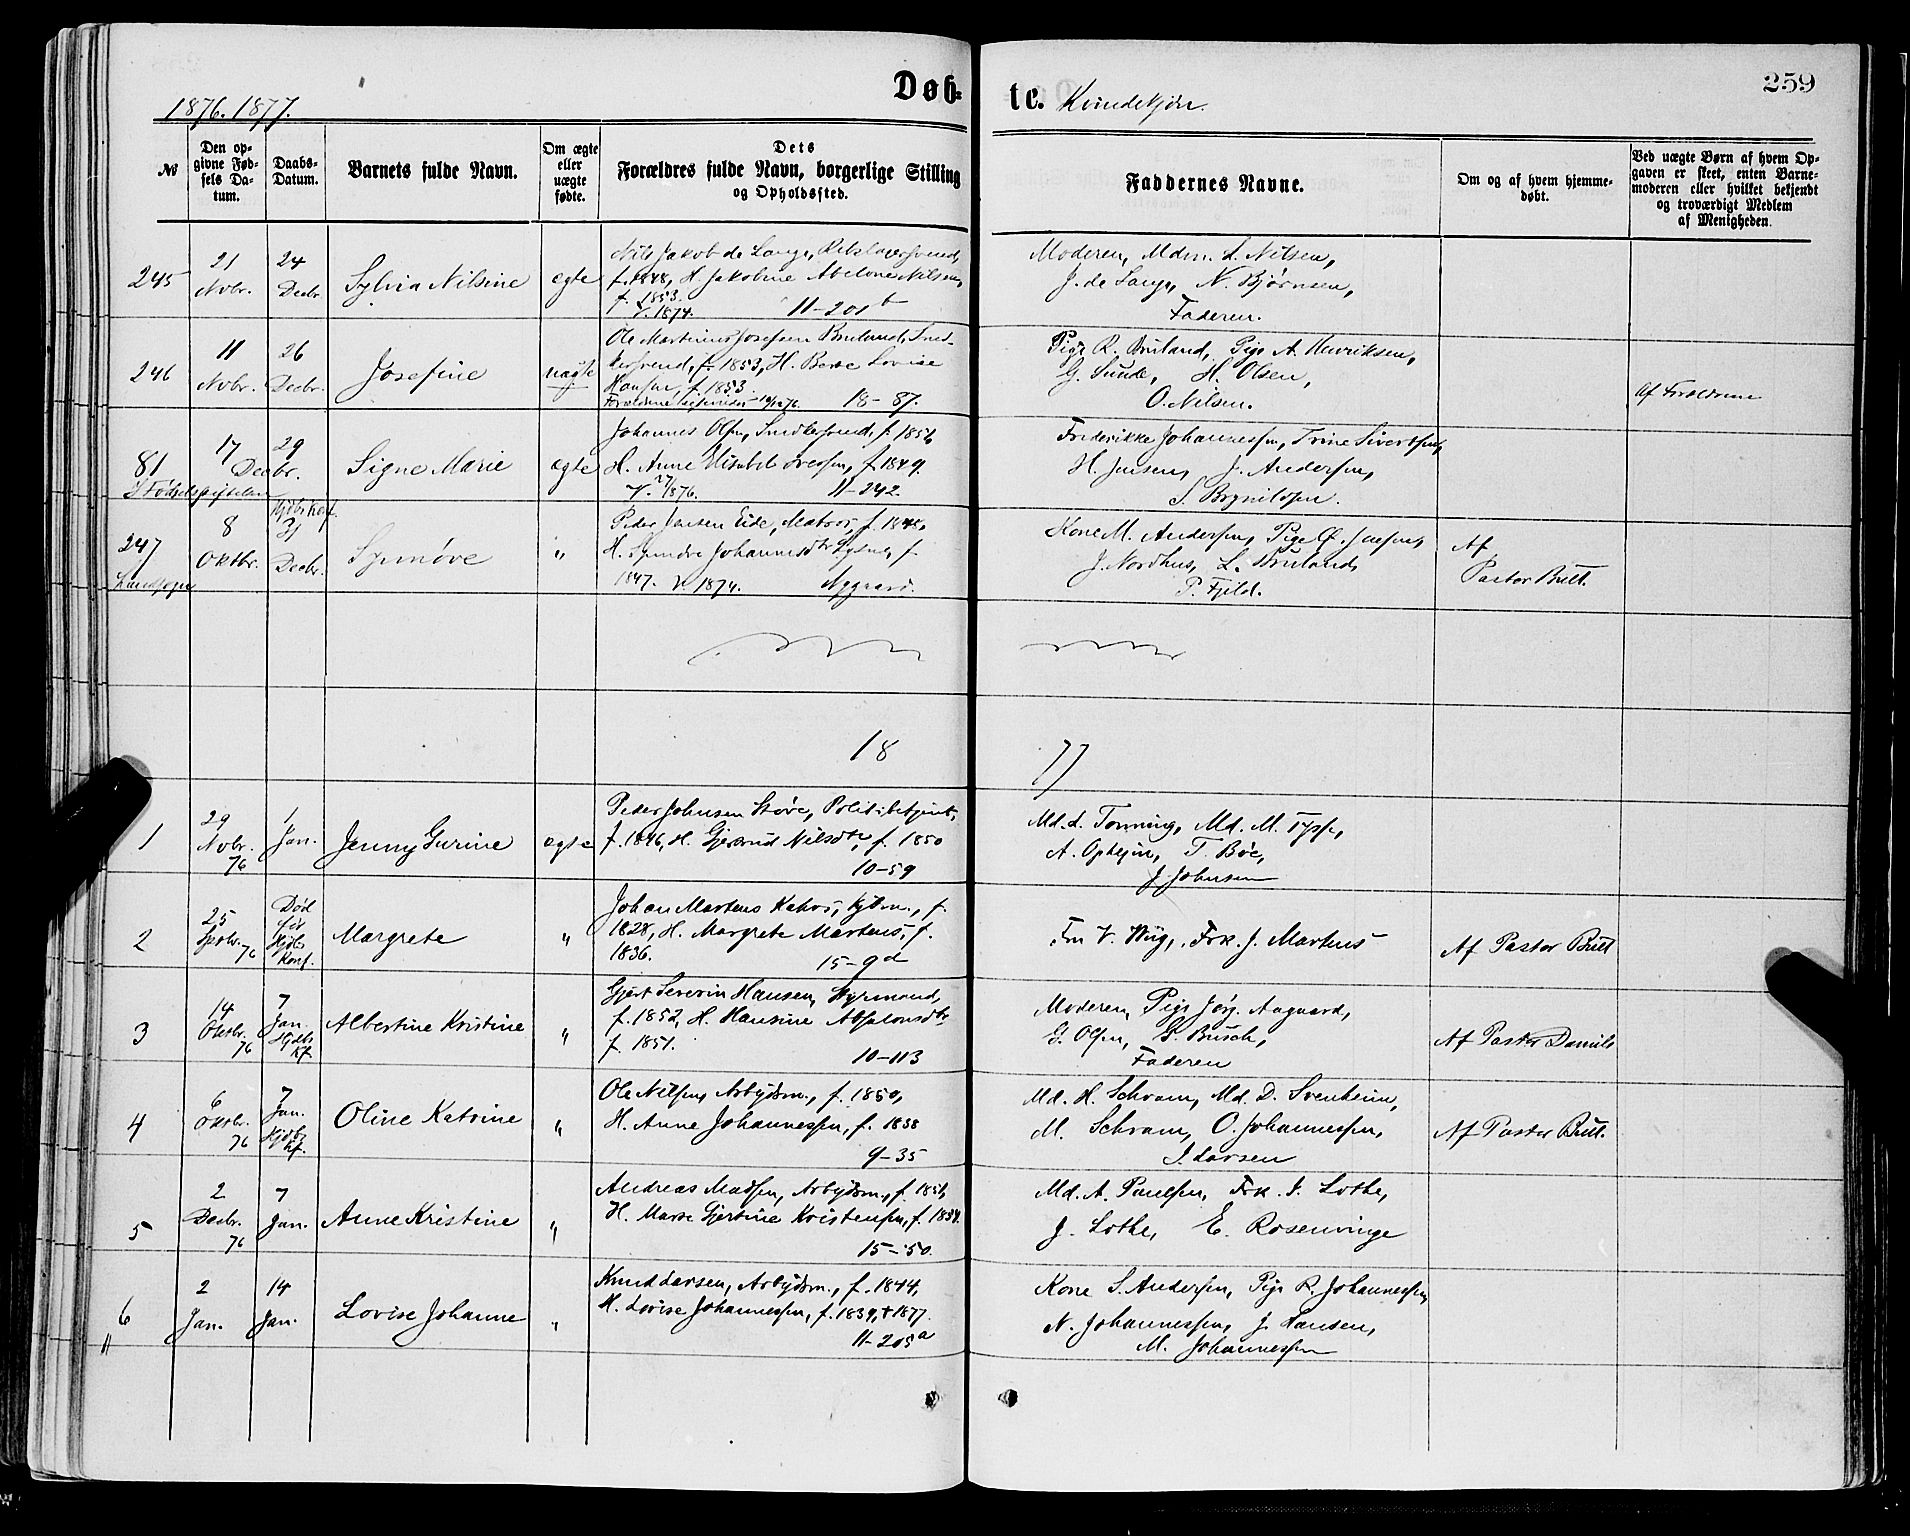 259
1876. 1877.
Døb-
te. Kvindekjøn.
№
Den opgivne Fødsels Datum.
Daabs-Datum.
Barnets fulde Navn.
Om ægte eller uægte fødte.
Dets Forældres fulde Navn, borgerlige Stilling og Opholdssted.
Faddernes Navne.
Om og af hvem hjemmedøbt.
Ved uægte Børn af hvem Opgaven er skeet, enten Barnemoderen eller hvilket bekjendt og troværdigt Medlem af Menigheden.
245
21 Novbr.
24 Decbr.
Sylvia Nilsine
ægte
Nils Jakob de Lange,
f. 1848, H. Jakobine Abelone Nilsen,
f. 1853.
V. 1874. 11-201b
Moderen, Mdm. L. Nilsen,
J. de Lange, N. Bjørnsen,
Faderen.
246
11 Novbr.
26 Decbr.
Josefine
uægte
Ole Martinus Josefsen Bruland, Sned-
kersvend, f. 1853, H. Berte Lovise
Hansen, f. 1853.
18-87.
Pige R. Bruland, Pige A. Henriksen,
G. Sunde, H. Olsen,
O. Nilsen.
Af Forældrene
81
I Fødselsstiftelsen
17
29
Decbr.
Signe Marie
ægte
Johannes Olsen, Snedkersvend, f. 1854
H. Anne Elisabet Iversen, f. 1849.
V. 1876. 11-242.
Frederikke Johannessen, Trine Sivertsen,
H. Jensen, J. Andersen,
S. Brynildsen.
247
Landsogn
8 Oktbr.
Hjdbs. Konf.
31 Decbr.
Synnøve
"
Peder Jansen Eide, Matros, f. 1848,
H. Synneve Johannesdtr f.
1847. V. 1874. Nygaard.
Kone M. Andersen, Pige C. Jansen,
J. Nordhus, L. Bruland,
P. Fjeld.
Af
Pastor Bull.
18
77
1
29 Novbr. 76
1 Jan.
Jenny Gurine
ægte
Peder Johnsen Støve, Politibetjent,
f. 1846, H. Gjertrud Nilsdtr, f. 1850
10-59
Md. L. Tonning, Md. M.
A. Opheim, T. Bøe,
J. Johnsen
2
25 Sptbr. 76
Død før Hjdbs Konf.
Margrete
"
Johan Martens Kahrs, Kjbm., f.
1828, H. Margrete Martens, f.
1836. 15-9d
Fru V. Wiig, Frk. J. Martens
Af Pastor Bull
3
14 Oktbr. 76
7 Jan. Hjdbs Kf.
Albertine Kristine
"
Gjert Severin Hansen, Styrmand,
f. 1852, H. Hansine Absalonsdtr
f. 1851. 10-113
Moderen, Pige Jørg. Aagaard,
G. Olsen, S. Busch,
Faderen
Af Pastor Daniels
4
6 Oktbr. 76
7 Jan. Hjdbs Kf.
Oline Katrine
"
Ole Nilsen, Arbejdsm., f. 1850,
H. Anne Johannessen, f. 1858
9-35
Md. H. Schram, Md. D. Svenheim,
M. Schram, O. Johannessen,
J. Larsen
Af Pastor Bull.
5
2 Decbr. 76
7 Jan.
Anne Kristine
"
Andreas Madsen, Arbejdsm., f. 1851,
H. Marte Gjertine Kristensen, f. 1854.
15-50.
Md. A. Paulsen, Frk. J. Lothe,
J. Lothe, E. Rosenvinge
6
"
2 Jan.
14 Jan.
Lovise Johanne
"
Knud Larsen, Arbejdsm., f. 1844,
H. Lovise Johannessen, f. 1839, † 1877.
11-205a
Kone S. Andersen, Pige R. Johannessen,
N. Johannessen, J. Hansen,
M. Johannessen